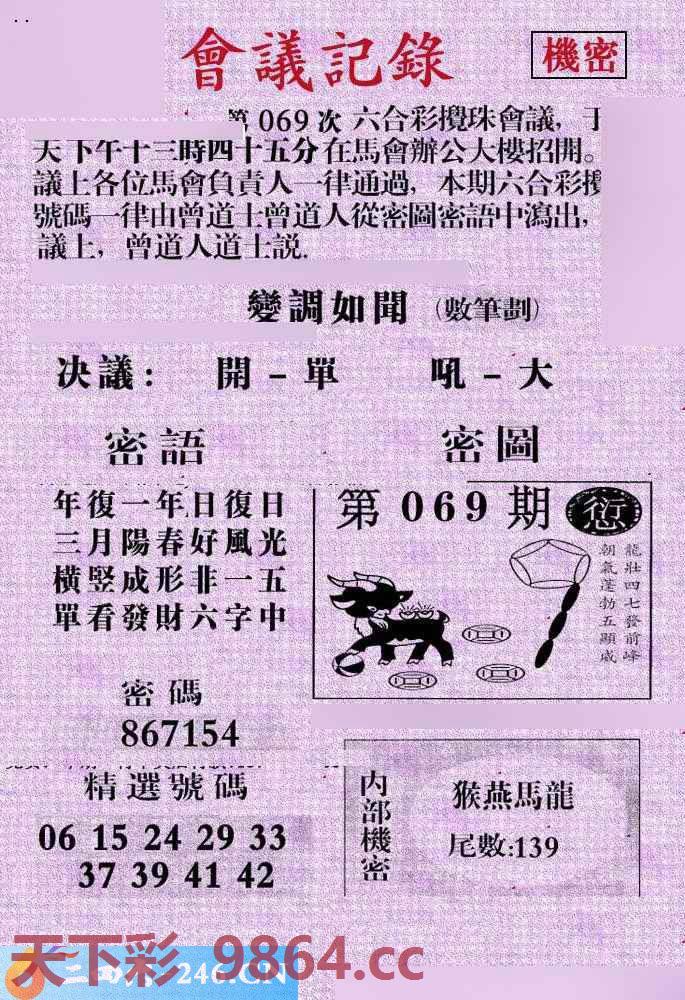 會議記錄
機密
第 069 次 六合彩攪珠會議,
天下午十三時四十五分在馬會辦公大樓招開。
議上各位馬會負責人一律通過, 本期六合彩攪
號碼一律由曾道士曾道人從密圖密語中瀉出,
議上, 曾道人道士説.
變調如聞 (數筆劃)
决議: 開-單 吼-大
密語
密圖
年復一年日復日
三月陽春好風光
橫竖成形非一五
單看發財六字中
第069期
龍壯四七發前峰
朝氣蓬勃五顯威
密碼
867154
精選號碼
06 15 24 29 33
37 39 41 42
内部機密
猴燕馬龍
尾數:139
天下彩 9864.cc
246.CN